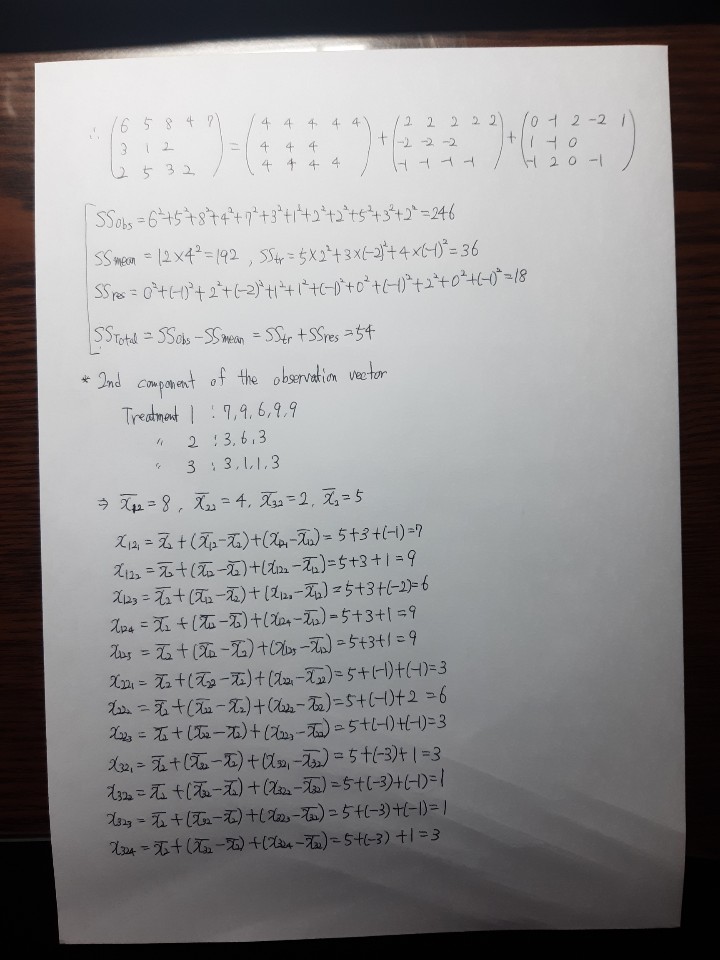 ∴ (6 5 8 4 7 = (4 4 4 4 4 + (2 2 2 2 2 + (0 -1 2 -2 1
3 1 2 4 4 4 -2 -2 -2 1 -1 0
2 5 3 2) 4 4 4 4) -1 -1 -1 -1) -1 2 0 -1)
SSobs = 6²+5²+8²+4²+7²+3²+1²+2²+2²+5²+3²+2² = 246
SSmean = 12×4² = 192 , SStr = 5×2²+3×(-2)²+4×(-1)² = 36
SSres = 0²+(-1)²+2²+(-2)²+1²+1²+(-1)²+0²+(-1)²+2²+0²+(-1)² = 18
SSTotal = SSobs - SSmean = SStr + SSres = 54
* 2nd component of the observation vector
Treatment 1 : 7, 9, 6, 9, 9
〃 2 : 3, 6, 3
〃 3 : 3, 1, 1, 3
⇒ x̄₁₂ = 8 , x̄₂₂ = 4, x̄₃₂ = 2, x̄₂ = 5
x₁₂₁ = x̄₂ + (x̄₁₂ - x̄₂) + (x₁₂₁ - x̄₁₂) = 5+3+(-1) = 7
x₁₂₂ = x̄₂ + (x̄₁₂ - x̄₂) + (x₁₂₂ - x̄₁₂) = 5+3+1 = 9
x₁₂₃ = x̄₂ + (x̄₁₂ - x̄₂) + (x₁₂₃ - x̄₁₂) = 5+3+(-2) = 6
x₁₂₄ = x̄₂ + (x̄₁₂ - x̄₂) + (x₁₂₄ - x̄₁₂) = 5+3+1 = 9
x₁₂₅ = x̄₂ + (x̄₁₂ - x̄₂) + (x₁₂₅ - x̄₁₂) = 5+3+1 = 9
x₂₂₁ = x̄₂ + (x̄₂₂ - x̄₂) + (x₂₂₁ - x̄₂₂) = 5+(-1)+(-1) = 3
x₂₂₂ = x̄₂ + (x̄₂₂ - x̄₂) + (x₂₂₂ - x̄₂₂) = 5+(-1)+2 = 6
x₂₂₃ = x̄₂ + (x̄₂₂ - x̄₂) + (x₂₂₃ - x̄₂₂) = 5+(-1)+(-1) = 3
x₃₂₁ = x̄₂ + (x̄₃₂ - x̄₂) + (x₃₂₁ - x̄₃₂) = 5+(-3)+1 = 3
x₃₂₂ = x̄₂ + (x̄₃₂ - x̄₂) + (x₃₂₂ - x̄₃₂) = 5+(-3)+(-1) = 1
x₃₂₃ = x̄₂ + (x̄₃₂ - x̄₂) + (x₃₂₃ - x̄₃₂) = 5+(-3)+(-1) = 1
x₃₂₄ = x̄₂ + (x̄₃₂ - x̄₂) + (x₃₂₄ - x̄₃₂) = 5+(-3)+1 = 3